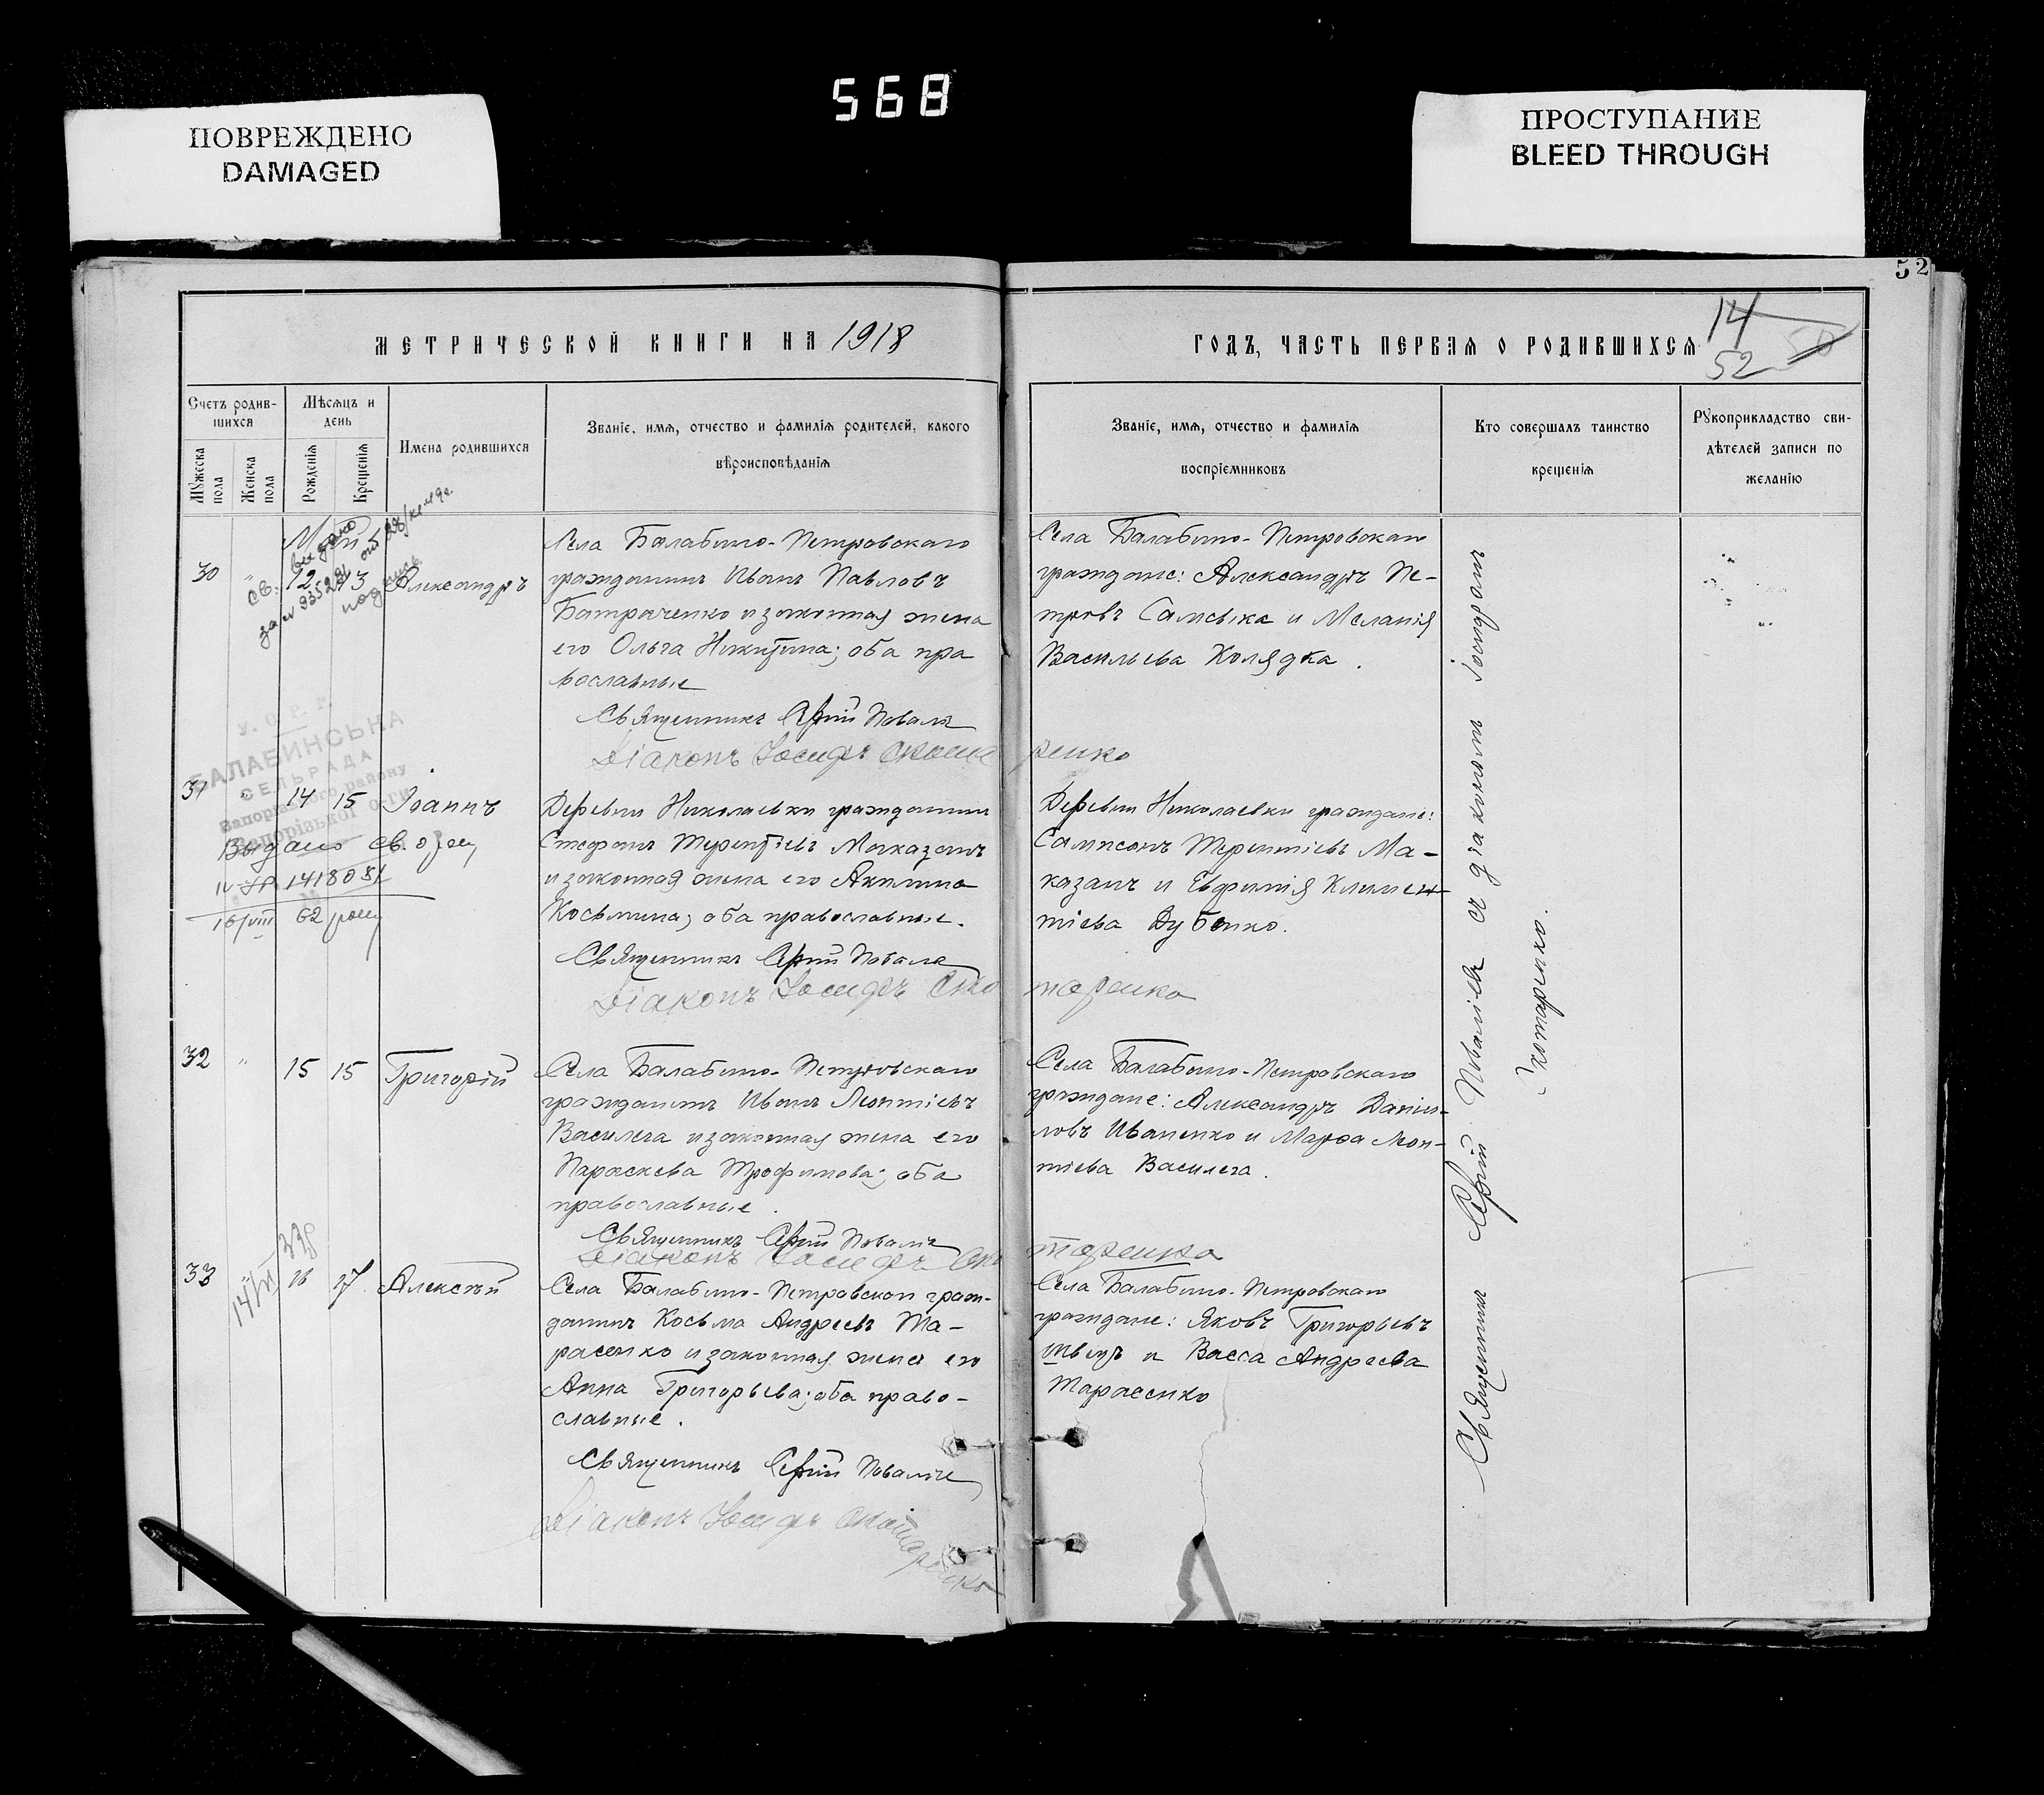 568
ПОВРЕЖДЕНО
DAMAGED
ПРОСТУПАНИЕ
BLEED THROUGH
52
МЕТРИЧЕСКОЙ КНИГИ НА 1918
ГОДЪ, ЧАСТЬ ПЕРВАЯ О РОДИВШИХСЯ
14
52
Счетъ родив-
шихся
Мужеска
пола
Женска
пола
Мѣсяцъ и
день
Рожденія
Крещенія
Имена родившихся
Званіе, имя, отчество и фамилія родителей, какого
вѣроисповѣданія
Званіе, имя, отчество и фамилія
воспріемниковъ
Кто совершалъ таинство
крещенія
Рукоприкладство сви-
дѣтелей записи по
желанію
Май
30 " 12 13 Александръ
Села Балабино-Петровскаго
гражданинъ Иванъ Павловъ
Батраченко и законная жена
его Ольга Никитина; оба пра
вославные
Священникъ Сергій
Діаконъ Іосифъ
Села Балабино-Петровскаго
граждане: Александръ Пе-
тровъ Самсыка и Меланія
Васильева Колядка.
У. С. Р. Р.
БАЛАБИНСЬКА
СЕЛЬРАДА
Запорізького району
Запорізької
31 " 14 15 Іоаннъ
Выдано св. о рож
IV-ЯР 1418051
16/VIII 62 року
Деревни Николаевки гражданинъ
Стефанъ Терентіевъ Маказанъ
и законная жена его Акилина
Косьмина; оба православные.
Священникъ Сергій
Діаконъ Іосифъ Скотаренко
Деревни Николаевки граждане:
Самсонъ Терентіевъ Ма-
казанъ и Евфимія Климен-
тіева Дубенко.
32 " 15 15 Григорій
Села Балабино-Петровскаго
гражданинъ Иванъ Леонтіевъ
Василега и законная жена его
Параскева Трофимова; оба
православные.
Священникъ Сергій
Діаконъ Іосифъ Скотаренко
Села Балабино-Петровскаго
граждане: Александръ Дании-
ловъ Иваненко и Марфа Леон-
тіева Василега.
33 26 27 Алексѣй
Села Балабино-Петровскаго граж-
данинъ Косьма Андреевъ Та-
расенко и законная жена его
Анна Григорьева; оба право-
славные.
Священникъ Сергій
Діаконъ Іосифъ Скотаренко
Села Балабино-Петровскаго
граждане: Яковъ Григорьевъ
Швецъ и Васса Андреева
Тарасенко
Священникъ Сергій съ діакономъ Іосифомъ
Скотаренко.